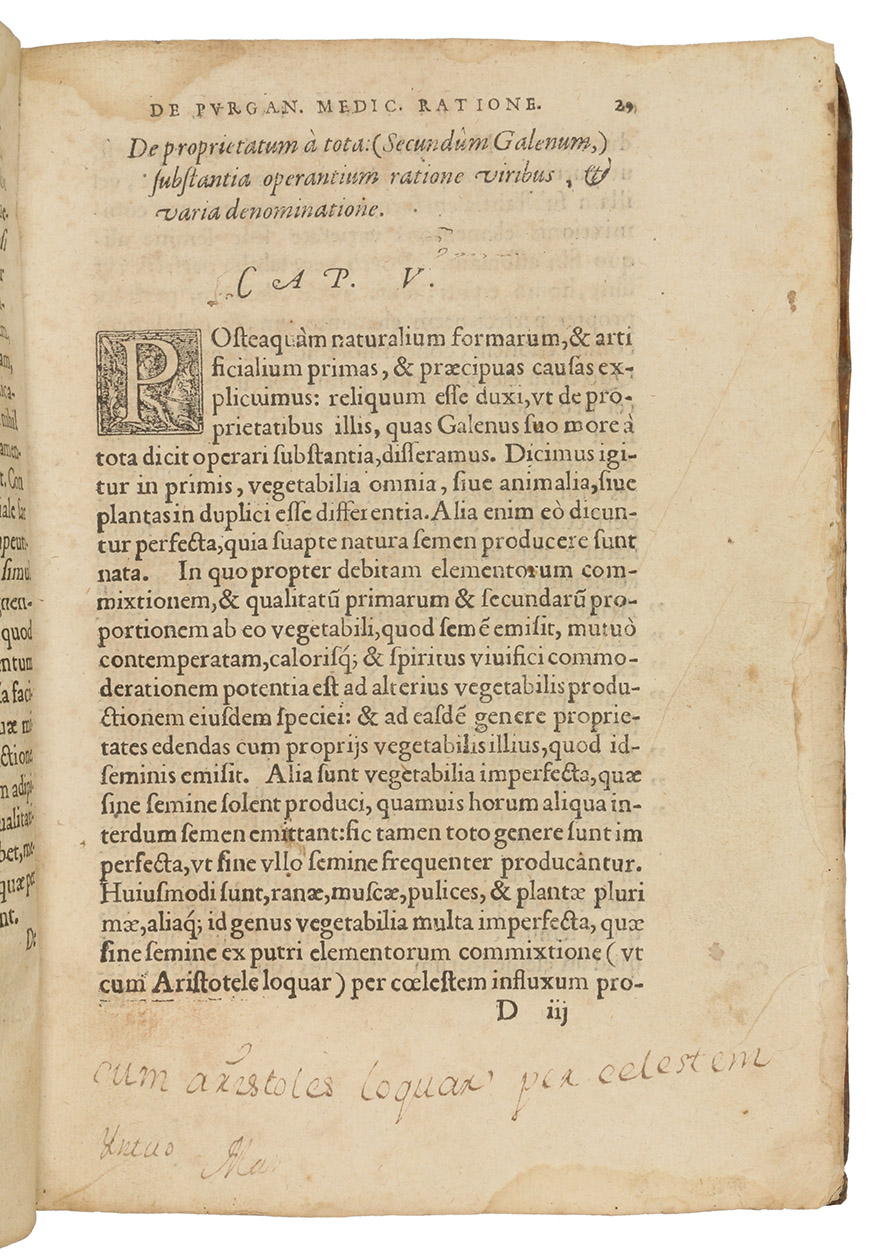 DE PVRGAN. MEDIC. RATIONE. 29
De proprietatum à tota: (Secundùm Galenum,)
ſubſtantia operantium ratione viribus, &
varia denominatione.
CAP. V.
POſteaquàm naturalium formarum, & arti
ficialium primas, & præcipuas cauſas ex-
plicuimus: reliquum eſſe duxi, vt de pro-
prietatibus illis, quas Galenus ſuo more à
tota dicit operari ſubſtantia, diſſeramus. Dicimus igi-
tur in primis, vegetabilia omnia, ſiue animalia, ſiue
plantas in duplici eſſe differentia. Alia enim eò dicun-
tur perfecta, quia ſuapte natura ſemen producere ſunt
nata. In quo propter debitam elementorum com-
mixtionem, & qualitatũ primarum & ſecundarũ pro-
portionem ab eo vegetabili, quod ſemẽ emiſit, mutuò
contemperatam, caloriſq́; & ſpiritus viuifici commo-
derationem potentia eſt ad alterius vegetabilis produ-
ctionem eiuſdem ſpeciei: & ad eaſdẽ genere proprie-
tates edendas cum proprijs vegetabilis illius, quod id-
ſeminis emiſit. Alia ſunt vegetabilia imperfecta, quæ
ſine ſemine ſolent produci, quamuis horum aliqua in-
terdum ſemen emittant: ſic tamen toto genere ſunt im
perfecta, vt ſine vllo ſemine frequenter producantur.
Huiuſmodi ſunt, ranæ, muſcæ, pulices, & plantæ pluri
mæ, aliaq́; id genus vegetabilia multa imperfecta, quæ
ſine ſemine ex putri elementorum commixtione (vt
cum Ariſtotele loquar) per cœleſtem influxum pro-
D iij
cum aristoles loquar per celestem